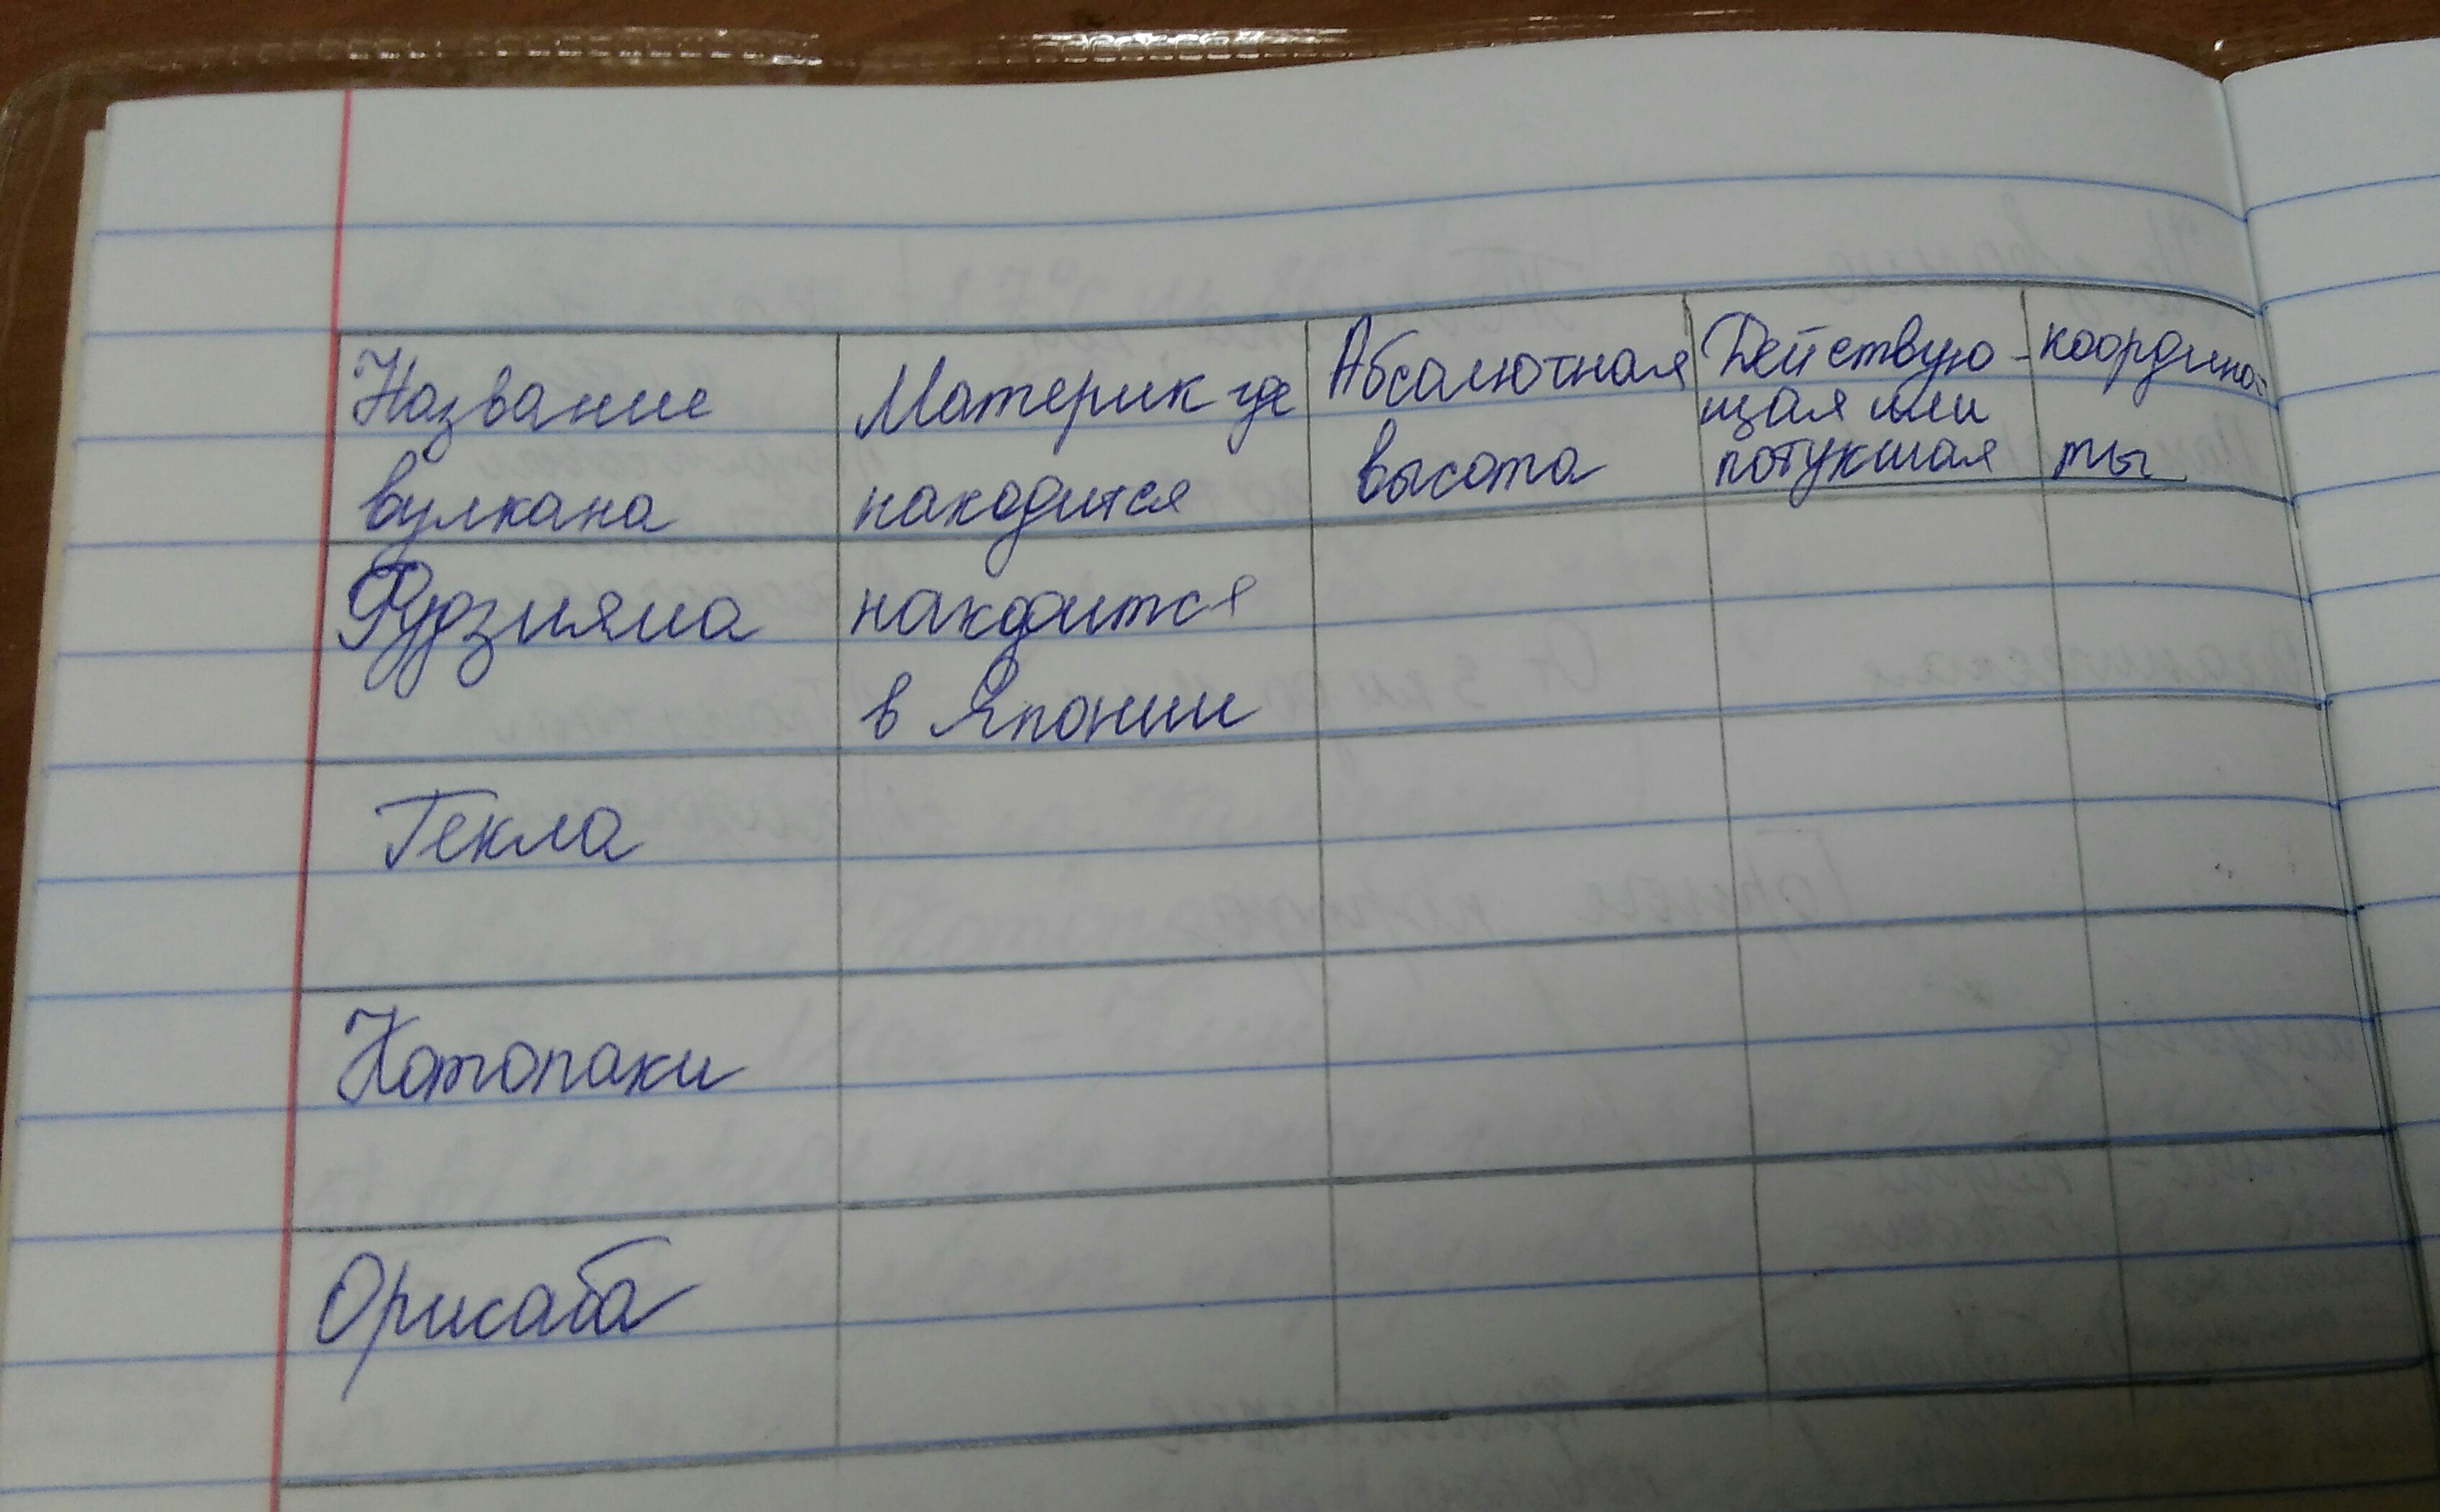 Название
вулкана
Материк где
находится
Абсалютная
высота
Действую-
щая или
потукшая
координа-
ты
Фудзияма
находится
в Японии
Гекла
Котопаки
Орисаба